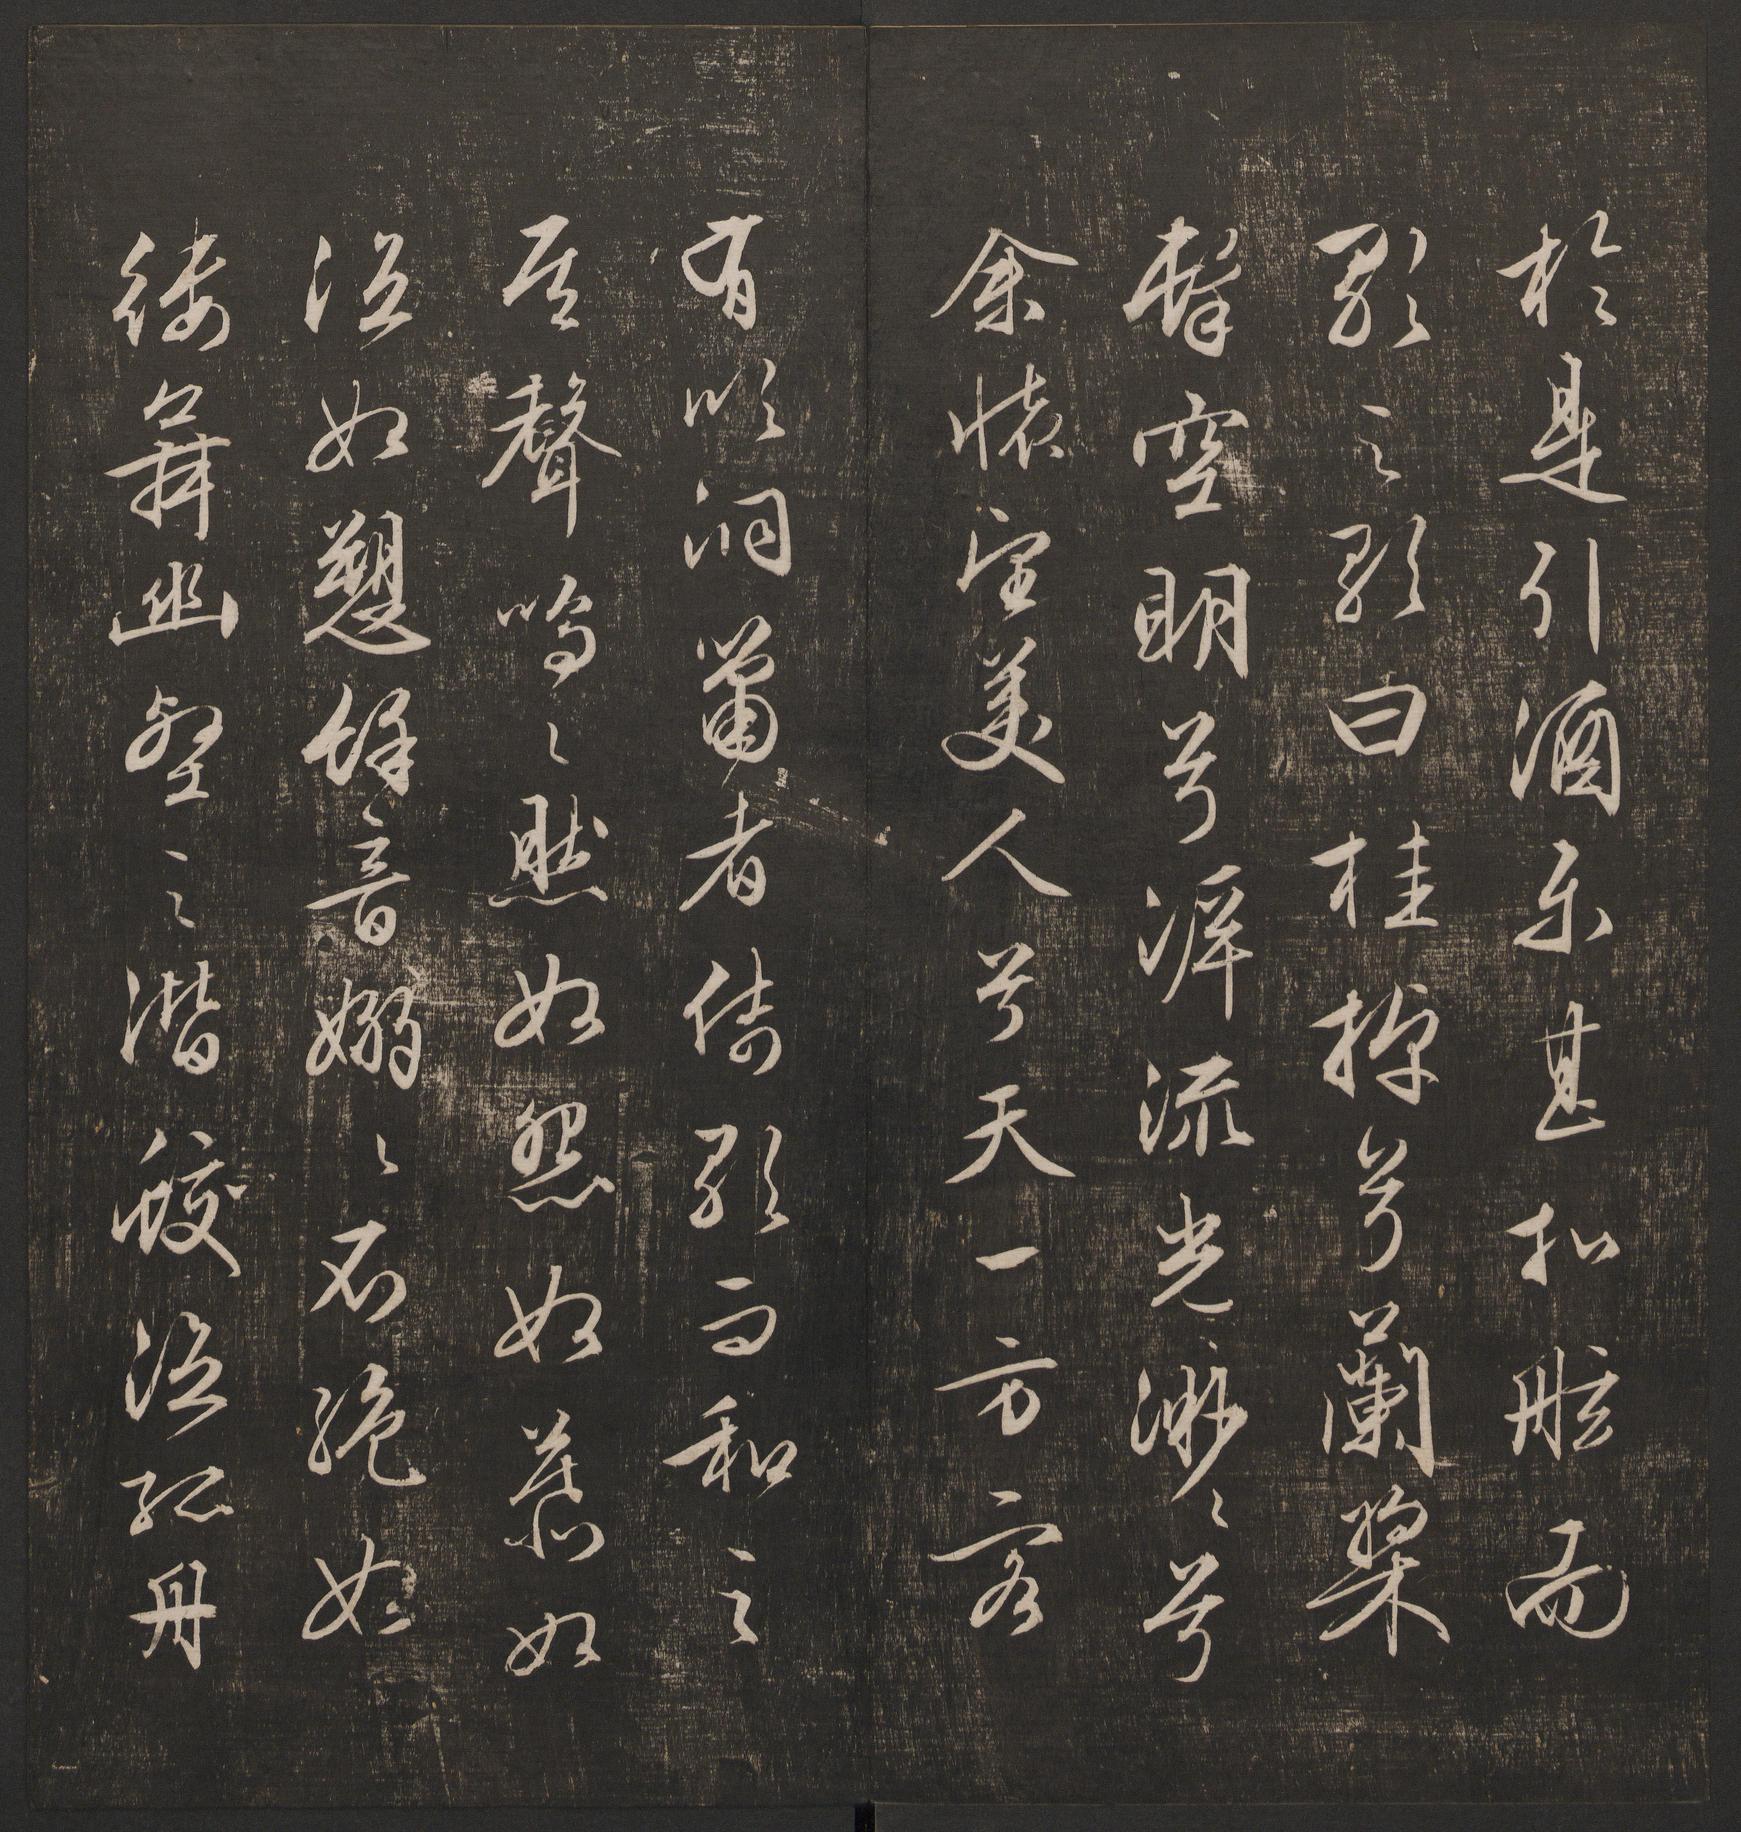 於是引酒樂甚扣舷而
歌之歌曰桂棹兮蘭槳
擊空明兮泝流光渺〻兮
余懷望美人兮天一方客
有吹洞簫者倚歌而和之
其聲嗚〻然如怨如慕如
泣如愬餘音嫋〻不絕如
縷舞幽壑之潛蛟泣孤舟